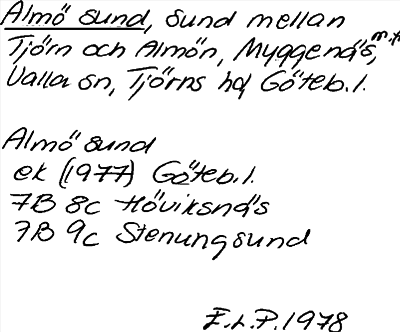 Almö sund, sund mellan
Tjörn och Almön, Myggenäs, m.fl.
Valla sn, Tjörns hd Göteb.l.
Almö sund
ek (1977) Göteb.l.
7B 8c Höviksnäs
7B 9c Stenungsund
E.L.P. 1978